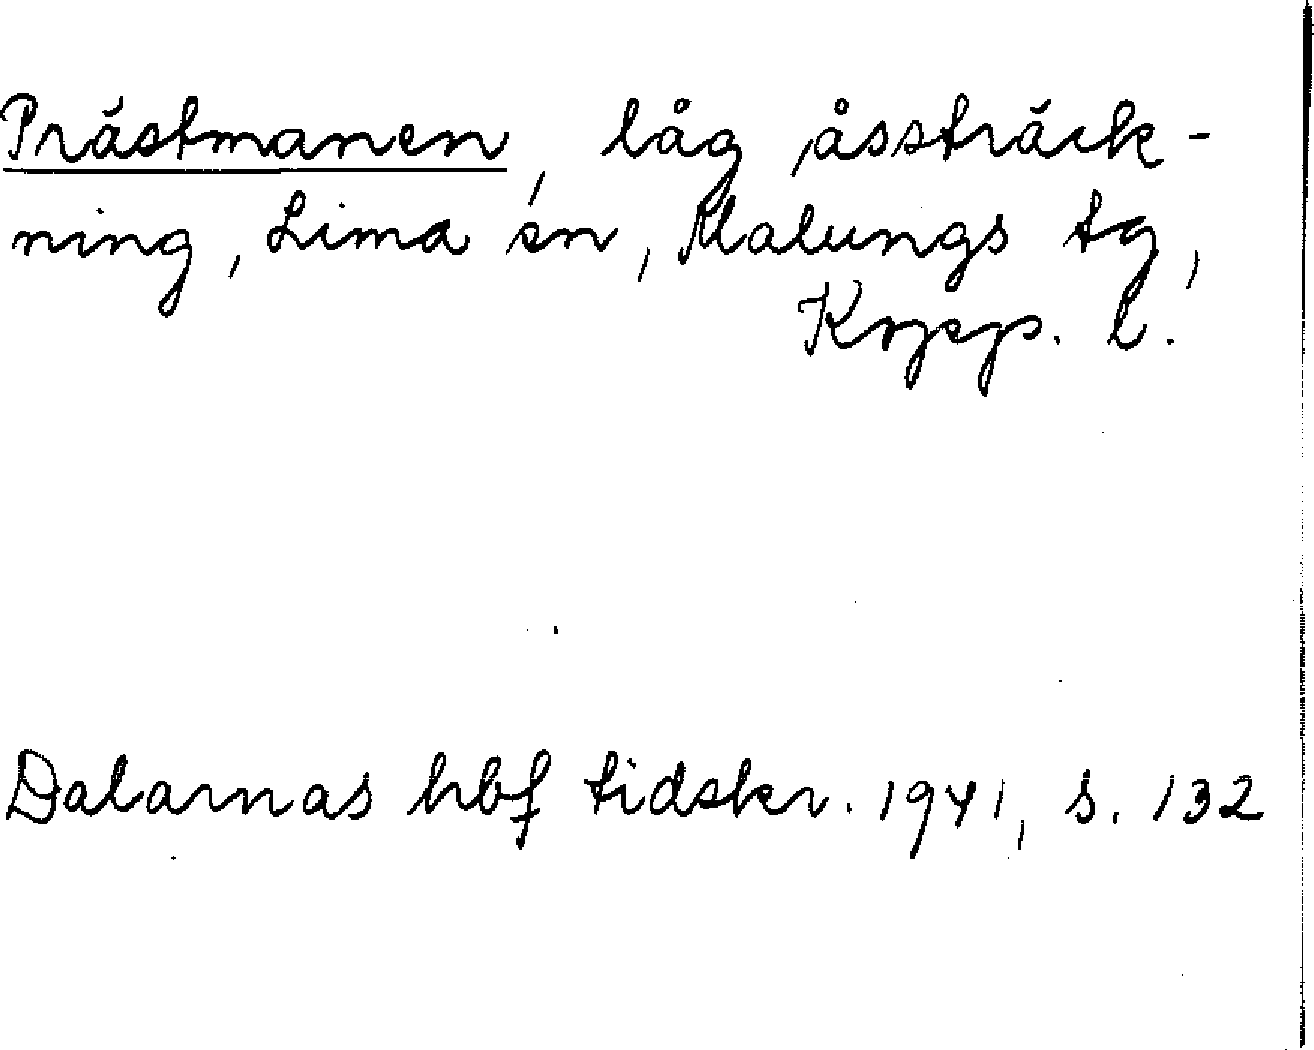 Prästmanen, låg åssträck-
ning, Lima sn, Malungs tg,
Kopp. l.
Dalarnas hbf tidskr. 1941, s. 132